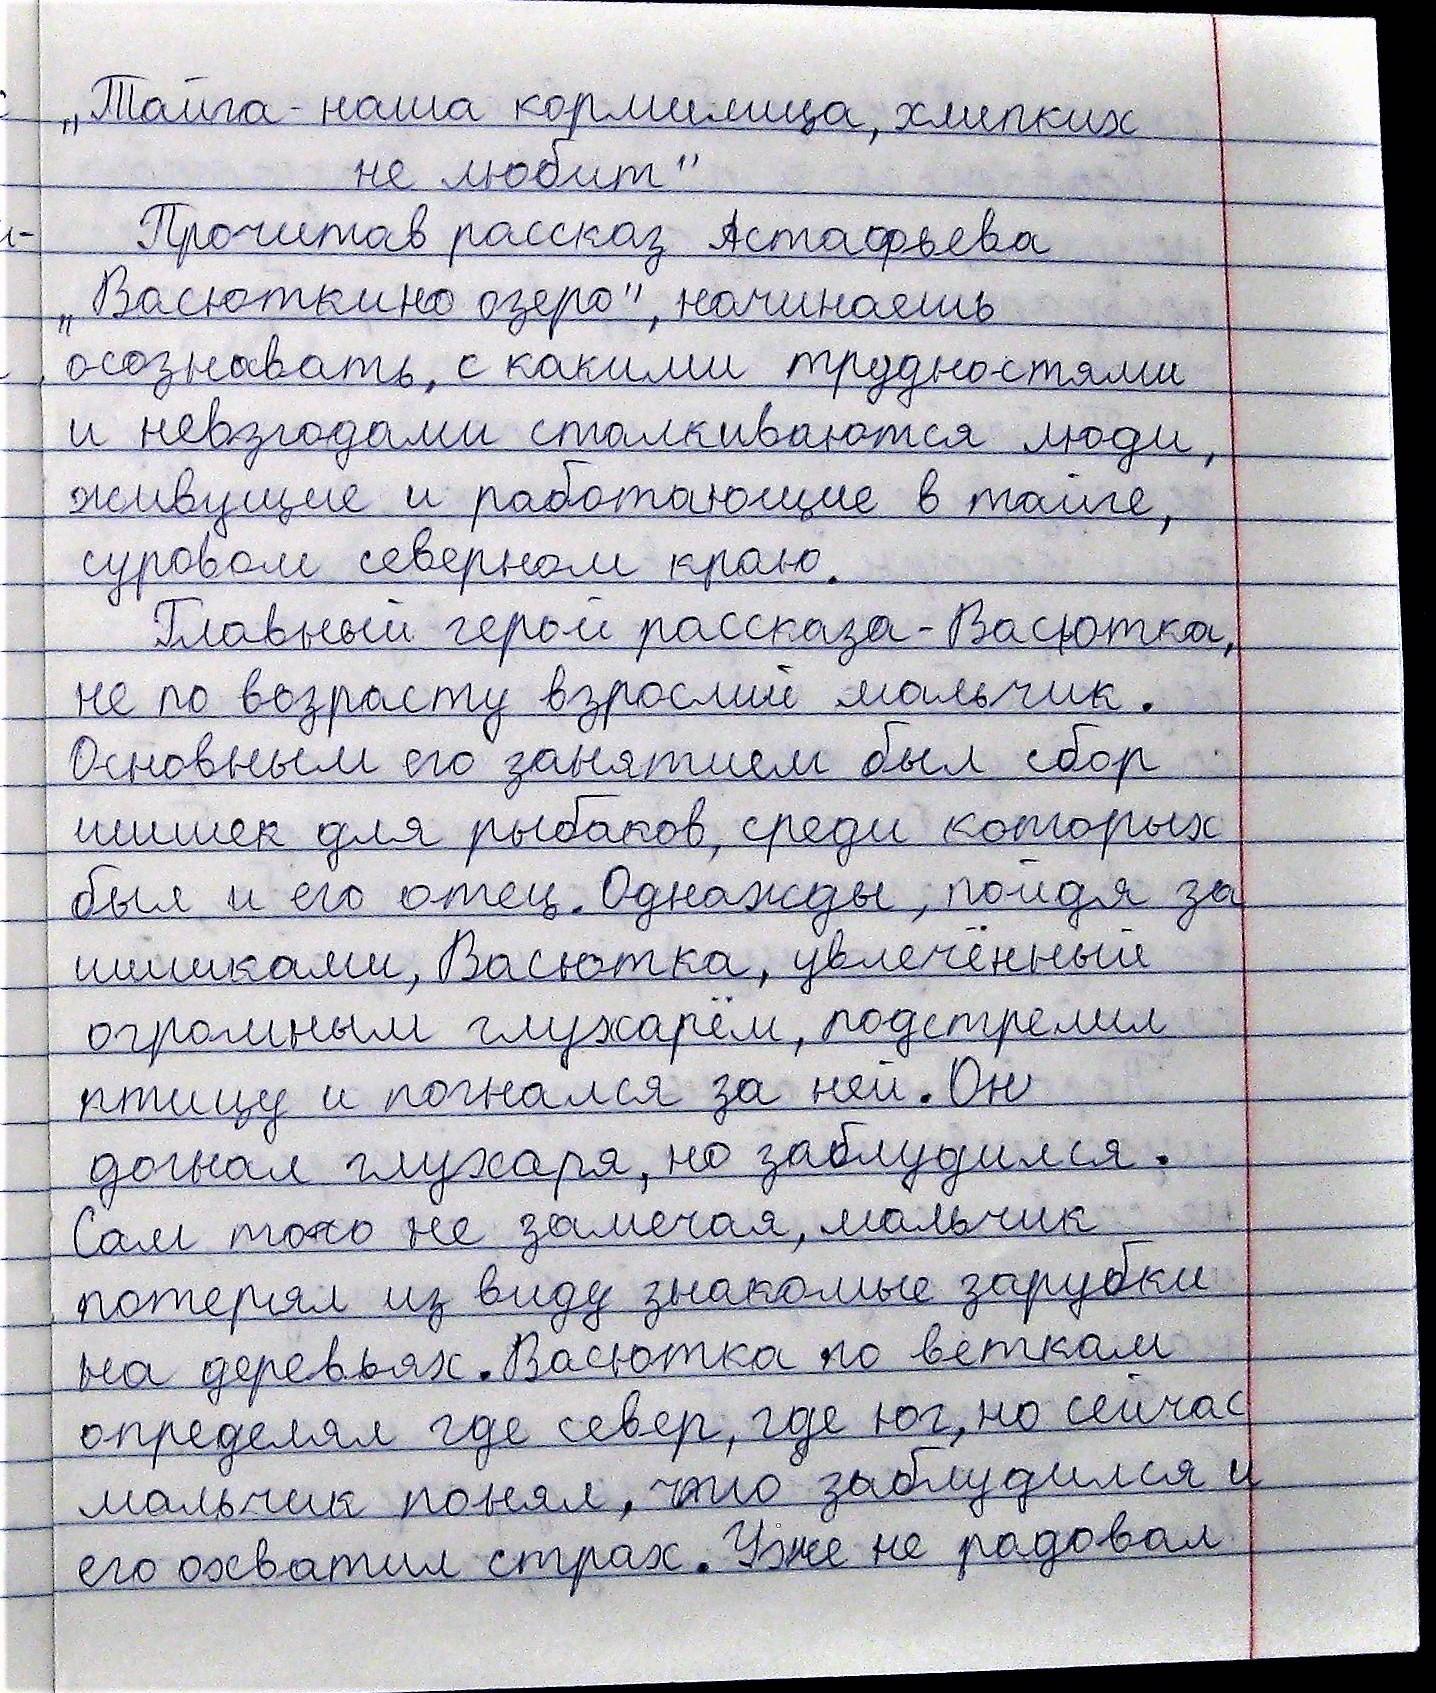 „Тайга - наша кормилица, хлипких
не любит"
Прочитав рассказ Астафьева
„Васюткино озеро", начинаешь
осознавать, с какими трудностями
и невзгодами сталкиваются люди,
живущие и работающие в тайге,
суровом северном краю.
Главный герой рассказа - Васютка,
не по возрасту взрослый мальчик.
Основным его занятием был сбор
шишек для рыбаков, среди которых
был и его отец. Однажды, пойдя за
шишками, Васютка, увлечённый
огромным глухарём, подстрелил
птицу и погнался за ней. Он
догнал глухаря, но заблудился.
Сам того не замечая, мальчик
потерял из виду знакомые зарубки
на деревьях. Васютка по веткам
определял где север, где юг, но сейчас
мальчик понял, что заблудился и
его охватил страх. Уже не радовал